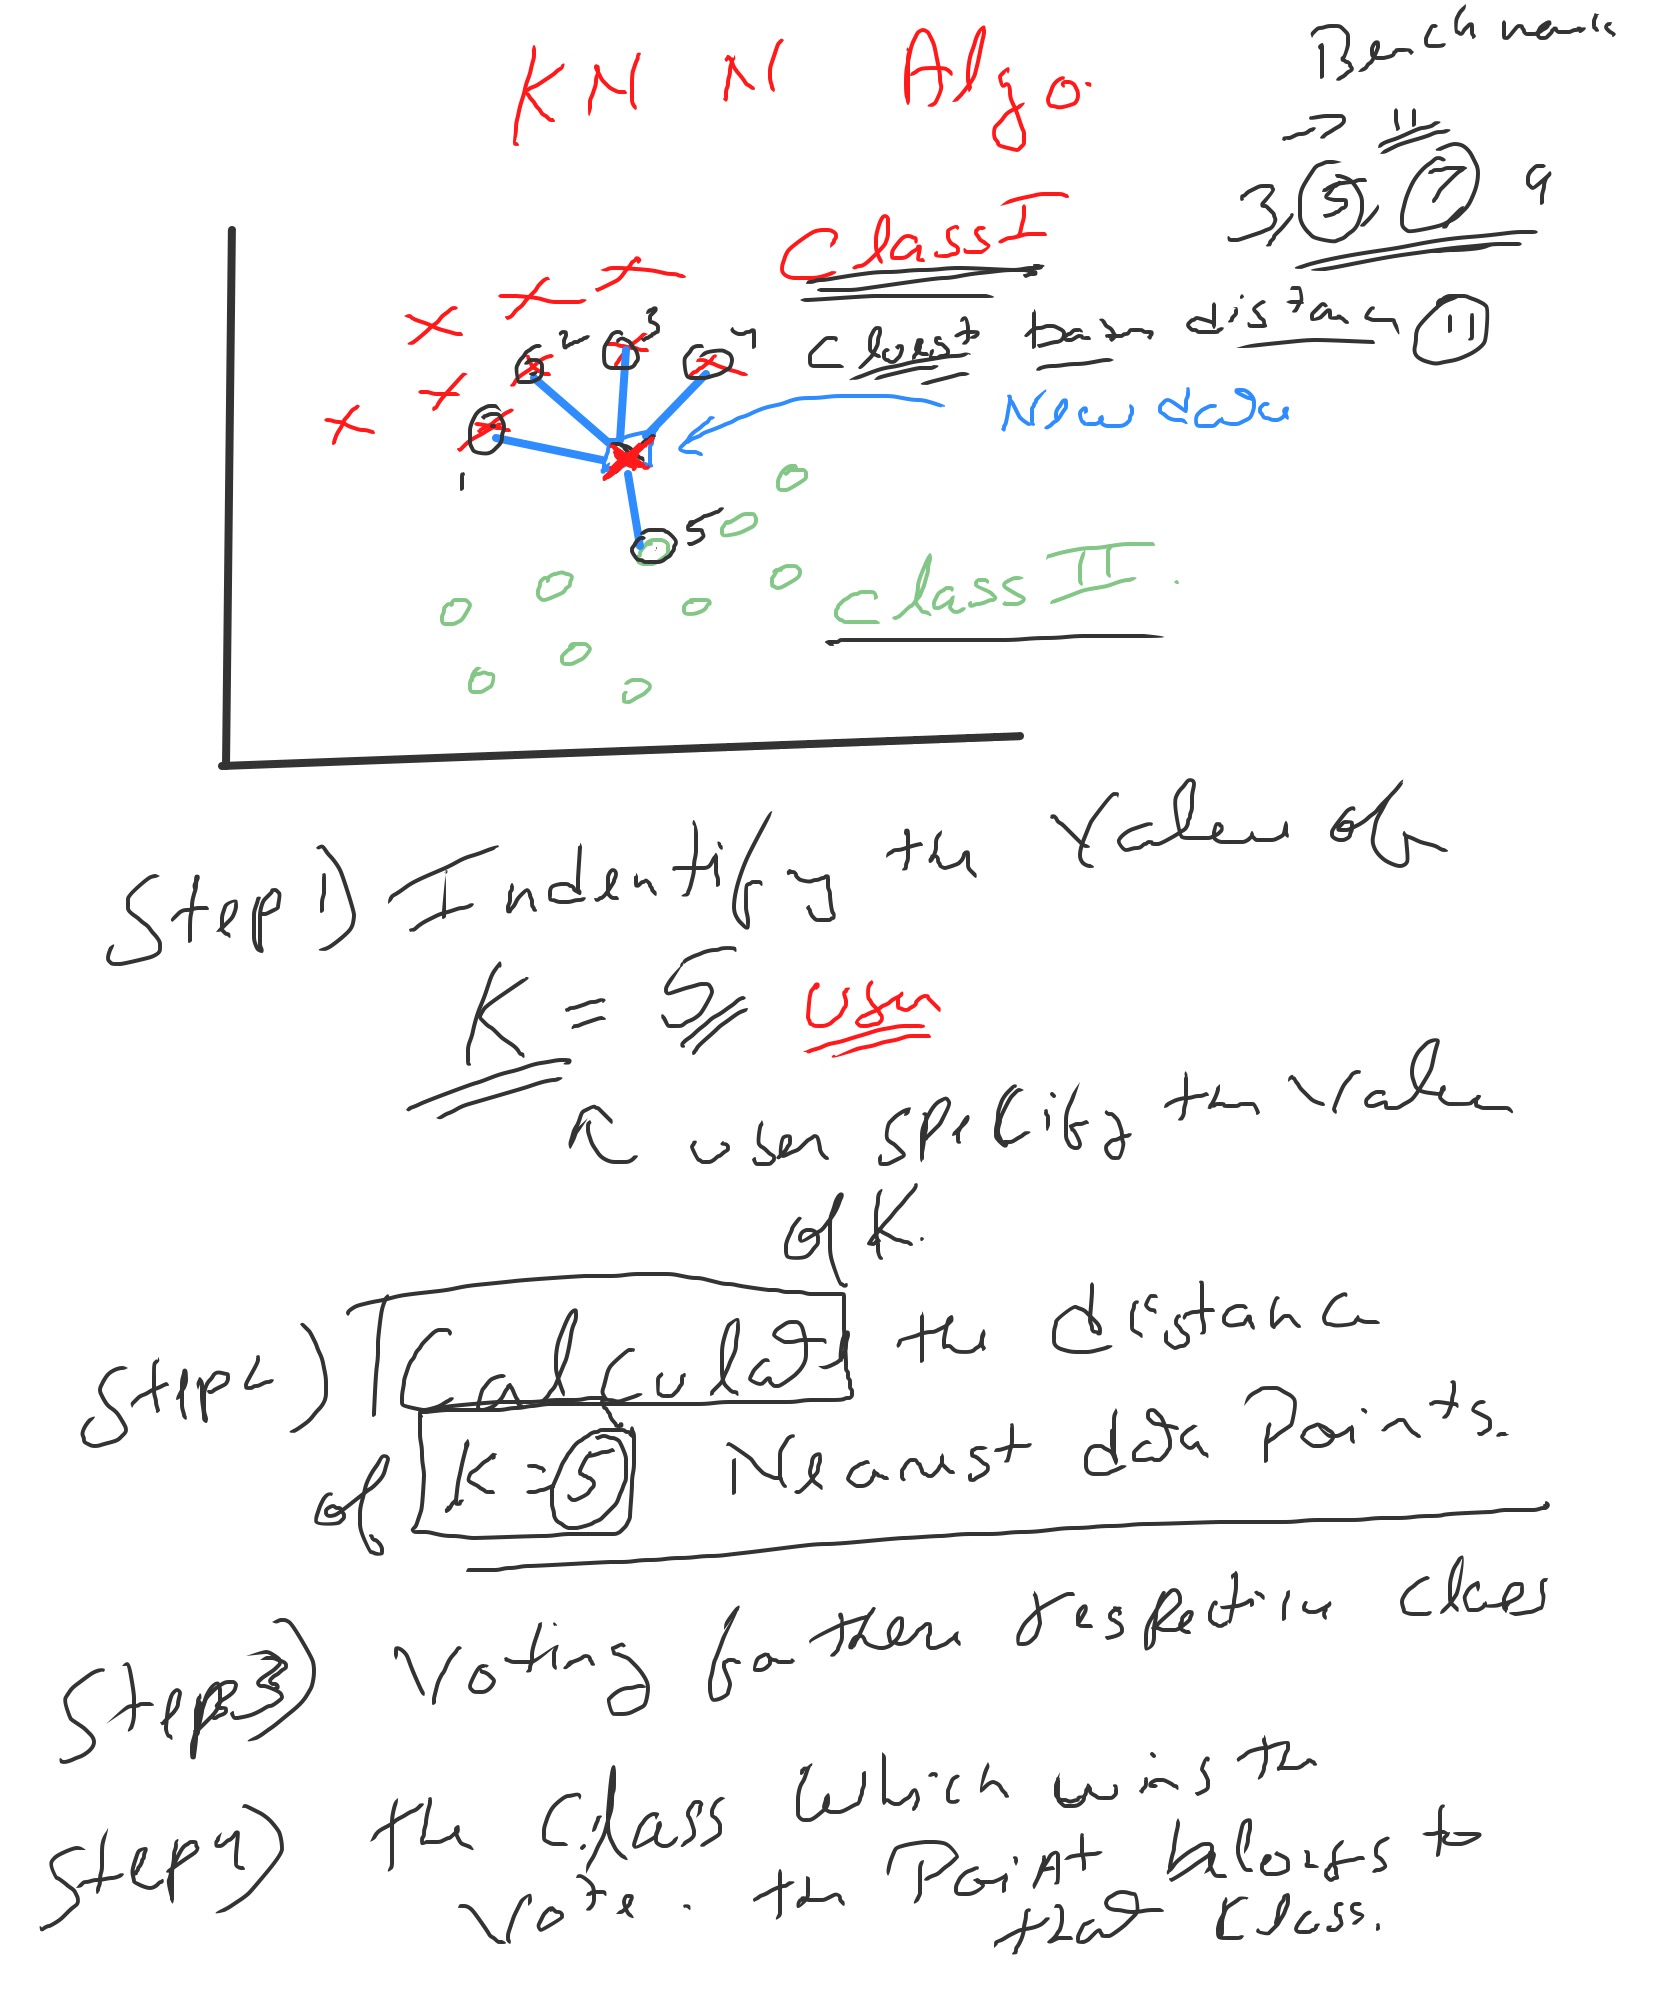 KNN Algo.
Benchmark
→ 11
3, 5, 7 9
Class I
Closest distance 11
New data
1
2
3
4
5
Class II.
Step 1) Indentify the Value of
K = 5 user
user specify the value
of K.
Step 2) Calculate the distance
of K = 5 Nearest data Points.
Step 3) Voting for there respective class
Step 4) the Class which wins the
vote. the Point belongs to
that class.